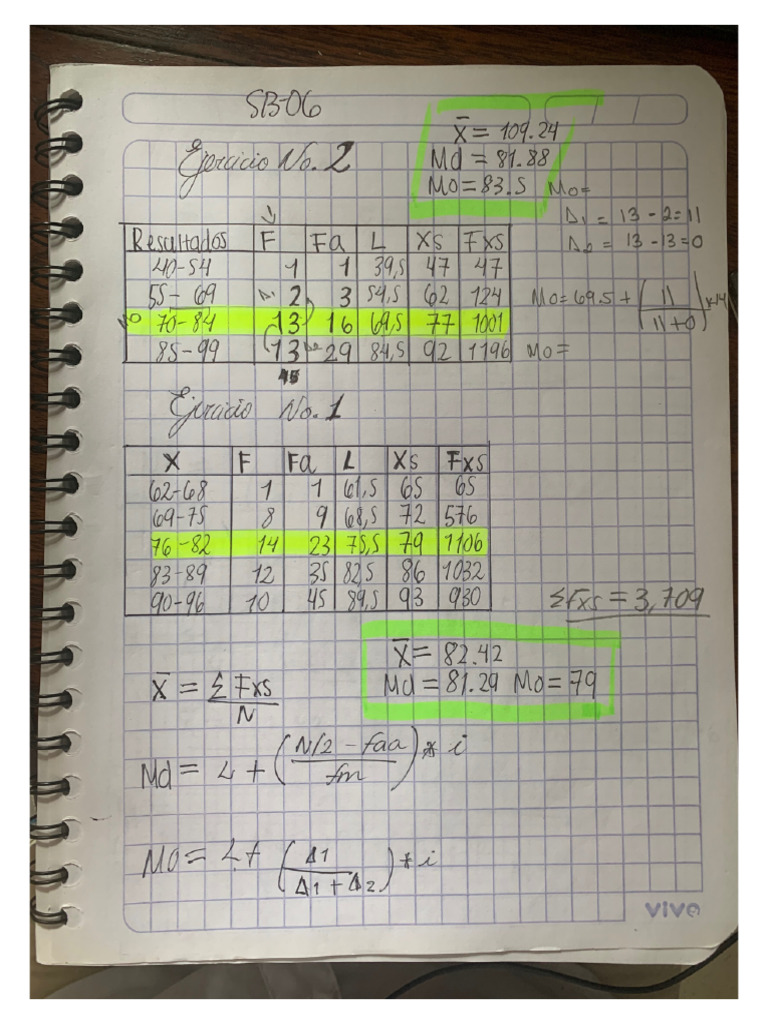 SB-06
X̄ = 109.24
Ejercicio No. 2
Md = 81.88
Mo = 83.5 Mo=
Δ1 = 13 - 2 = 11
Δ2 = 13 - 13 = 0
Resultados F Fa L Xs Fxs
40-54 1 1 39,5 47 47
55-69 Δ1 2 3 54,5 62 124
Mo 70-84 13 16 69,5 77 1001
85-99 13 Δ2 29 84,5 92 1196
Mo = 69.5 + (11 / 11+0) x 14
Mo =
45
Ejercicio No. 1
X F Fa L Xs Fxs
62-68 1 1 61,5 65 65
69-75 8 9 68,5 72 576
76-82 14 23 75,5 79 1106
83-89 12 35 82,5 86 1032
90-96 10 45 89,5 93 930
ΣFxs = 3,709
X̄ = 82.42
Md = 81.29 Mo = 79
X̄ = Σ Fxs / N
Md = L + (N/2 - faa / fm) * i
Mo = L + (Δ1 / Δ1 + Δ2) * i
vivo